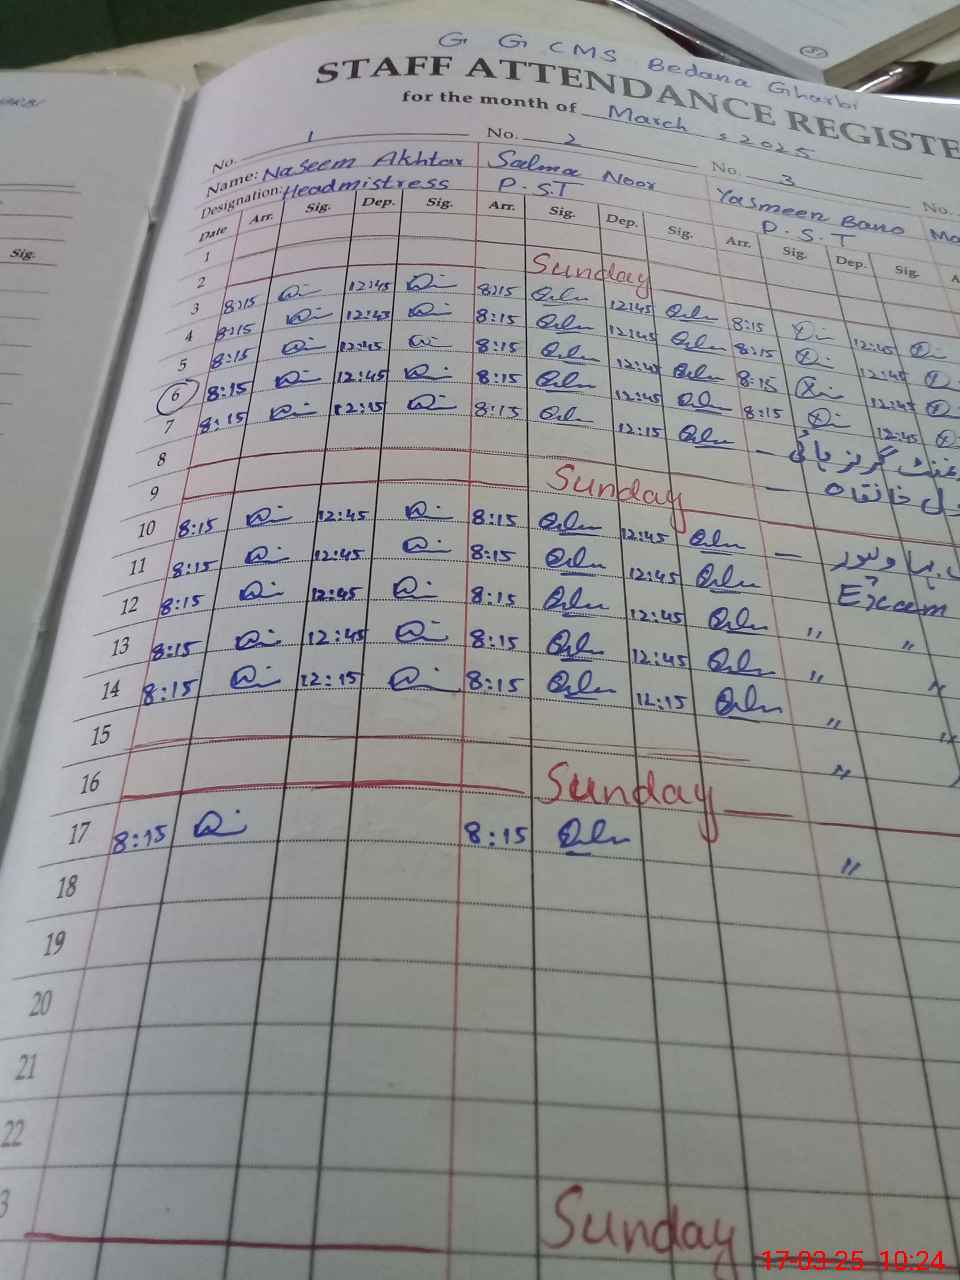 G G CMS Bedana Gharbi
STAFF ATTENDANCE REGISTE
for the month of March, 2025
No. 1 No. 2 No. 3 No.
Name: Naseem Akhtar Salma Noor Yasmeen Bano
Designation: Headmistress P.S.T P.S.T
Date Arr. Sig. Dep. Sig. Arr. Sig. Dep. Sig. Arr. Sig. Dep. Sig.
Sig.
1
2 Sunday
3 8:15 12:45 8:15 12:45 8:15 12:45
4 8:15 12:45 8:15 12:45 8:15 12:45
5 8:15 12:45 8:15 12:45 8:15 12:45
6 8:15 12:45 8:15 12:45 8:15 12:45
7 8:15 12:15 8:15 12:15 گرلز ہائی
8 خانقاہ
9 Sunday
10 8:15 12:45 8:15 12:45
11 8:15 12:45 8:15 12:45 Exam
12 8:15 12:45 8:15 12:45 " "
13 8:15 12:45 8:15 12:45 " "
14 8:15 12:15 8:15 12:15 " "
15 "
16 Sunday
17 8:15 8:15 "
18
19
20
21
22
3 Sunday
17-03-25 10:24